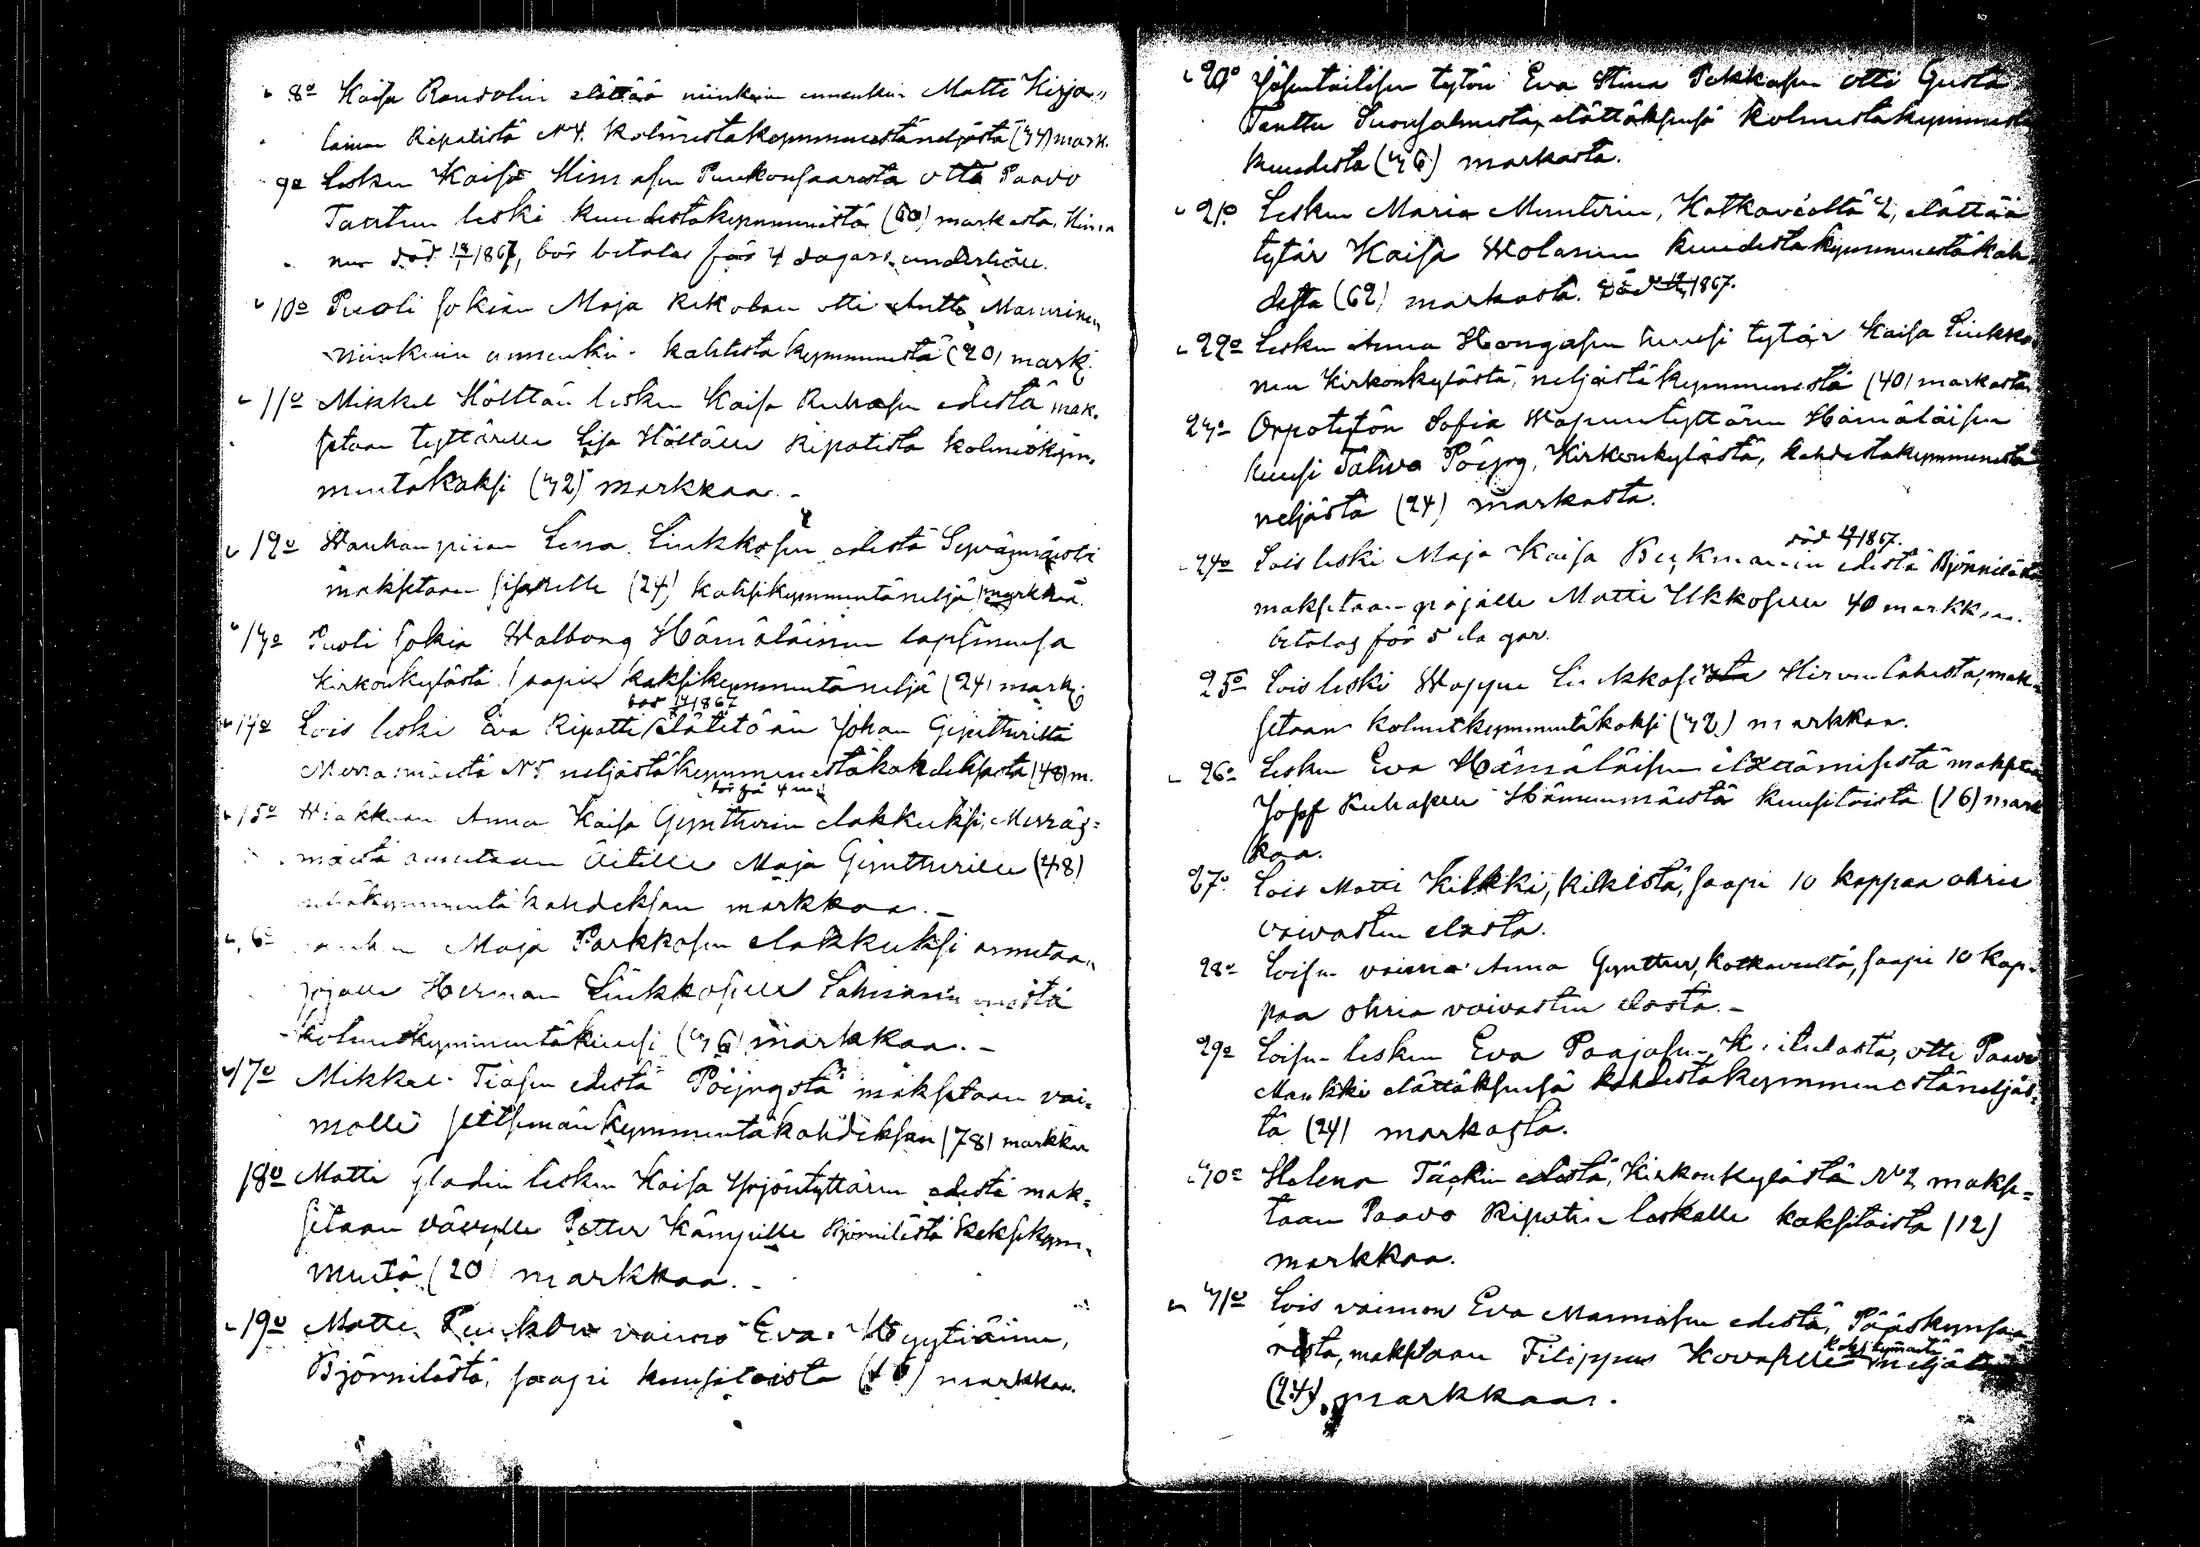 8o Kaisa Randolin elättää niinkuin ennenkin Matti Kirja„
lainen Ripatista N4. kolmestakymmenestäneljästä (34) mark.
9o Lesken Kaisa Himasen Punkonsaaresta otta Paavo
Tanttun leski kuudestakymmenestä (60) markasta, Hima
nen död /1867, bör betalas för 4 dagars underhåll.
10o Puoli sokian Maja Kekolan otti Antti Manninen
niinkuin ennenki. kahdesta kymmenestä (20) mark.
11o Mikkel Hölttän lesken Kaisa Ruhasen edestä mak.
setaan tyttärelle Lisa Höltälle Ripatista kolmekym.
mentäkaksi (32) markkaa. -
12o Wanhan piian Lena Liukkosen edestä
maksetaan sisarelle (24) kaksikymmentäneljä markkaa.
13o Puoli sokia Walborg Hämäläinen lapsinensa
Kirkonkylästä. saapi kaksikymmentäneljä (24) mark.
död 1867
14o Lois leski Eva Ripatti elätetään Johan Gyntturiltä
N5. neljästäkymmenestäkahdeksasta (48) m.
15o Anna Kaisa Gyntturin elakkuksi, Merräs=
mäestä annetaan Äitille Maja Gyntturille (48)
neljäkymmentä kahdeksan markkaa. -
Maja Parkkosen elakkuksi annetaan
pojalle Herman Liukkoselle
kolmekymmentäkuusi (36) markkaa. -
17o Mikkel Tiasen edestä Pöijystä maksetaan vai.
molle seitsemänkymmentäkahdeksan (78) markkaa
18o Matti Gladin lesken Kaisa Yrjöntyttären edestä mak=
setaan vävylle Petter Kämpille Björnilästä kaksikym=
mentä (20) markkaa. -
19o Matti vaimo Eva Hyytiäinen,
Björnilästä, saapi kuusitoista (16) markkaa.
20o tytön Eva Stina Pekkasen otti Gusta
Tanttu Suursalmesta, elättäksensä kolmestakymmenestä
kuudesta (36) markasta.
21o Lesken Maria Munterin, Kotkaveeltä 2, elättää
tytär Kaisa Wolanen kuudestakymmenestäkah=
desta (62) markasta. Död 1867.
22o Lesken Anna Hongasen tytär Kaisa Liukko
nen Kirkonkylästä, neljästäkymmenestä (40) markasta
23o Orpotytön Sofia Hämäläisen
Pöijy, Kirkonkylästä, kahdestakymmenestä
neljästä (24) markasta.
död 1867.
24o Lois leski Maja Kaisa Berkmanin edestä Björnilästä
maksetaan pojalle Matti Ukkoselle 40 markkaa.
betalas för 5 dagar.
25o Lois leski Wappu Hirvenlahesta, mak=
setaan kolmekymmentäkaksi (32) markkaa.
26o Lesken Eva Hämäläisen elättämisestä maksetaan
Josef Ruhasille Hämeenmäestä kuusitoista (16) mark
kaa.
27o Lois Matti Kilkki, Kilkistä, saapi 10 kappaa ohria
vaivasten elosta.
28o Loisen vaimo Anna Gynttur, Kotkaveeltä, saapi 10 kap=
paa ohria vaivasten elosta. -
29o Loisen lesken Eva Paajasen otti Paavo
Maukki elättäksensä kahdestakymmenestäneljäs=
tä (24) markasta.
30o Helena edestä, Kirkonkylästä N2, makse=
taan Paavo Ripatin leskelle kaksitoista (12)
markkaa.
31o Lois vaimon Eva Mannisen edestä, Pääskynsaa
resta, maksetaan Filippus Kovaselle kaksikymmentä neljä
(24) markkaa.